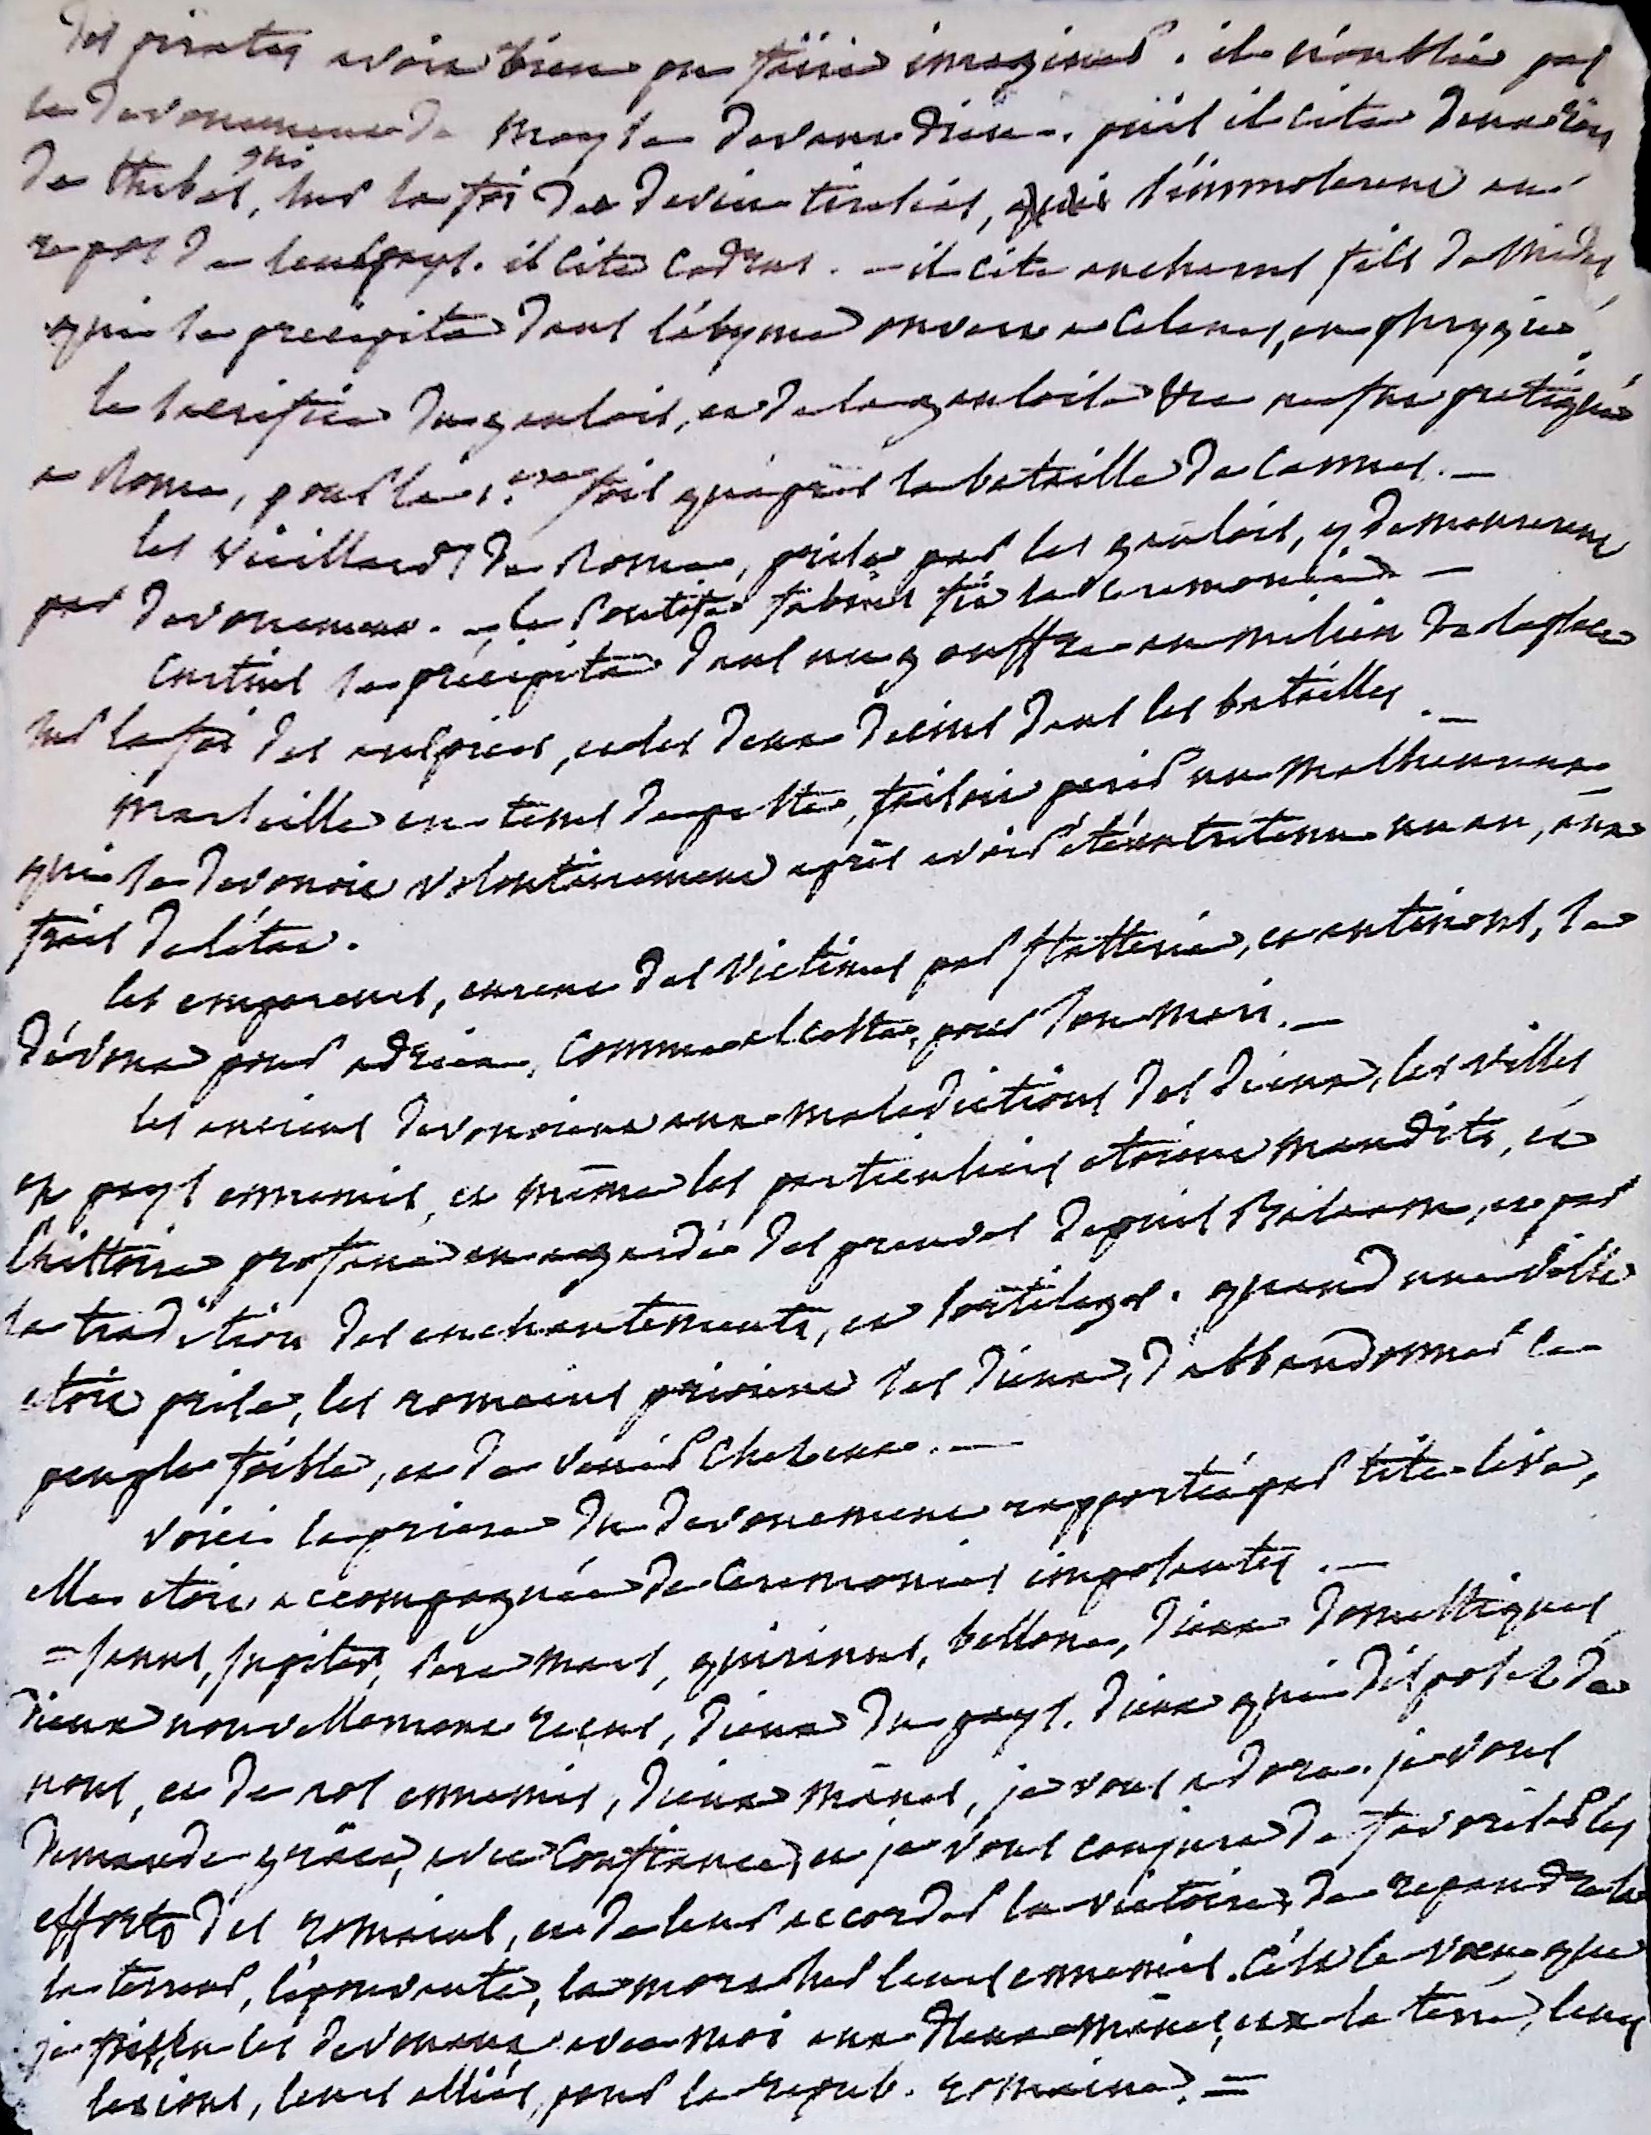 des pirates avoit bien pu faire imaginer. il n'oublie pas
le devouement de Moyse devant dieu. puis il cite deux rois
de thebes, qui sur la foi du devin tiresias, s'immolerent au
repos de leur pays. il cite Codrus. — il cite anchurus fils de Midas
qui se precipita dans l'abyme ouvert a Celenes, en phrygie
le sacrifice du gaulois, et de la gauloise vu ne fut pratiqué
a Rome, pour la 1.ere fois qu'après la bataille de Cannes. —
les vieillards de Rome, prise par les gaulois, y demeurerent
par devouement. — le Pontife fabius fit la ceremonie. —
Curtius se precipita dans un gouffre au milieu de la place
sur la foi des auspices, et les deux decius dans les batailles. —
Marseille en tems de peste, faisoit perir un malheureux
qui se devouoit volontairement après avoir été entretenu un an, aux
frais de l'état.
les empereurs, eurent des victimes par flatterie, et antinoüs, se
dévoua pour adrien, comme alceste, pour son mari. —
les anciens devouoient aux maledictions des dieux, les villes
et pays ennemis, et même les particuliers etoient maudits, et
l'histoire profane en a gardé des preuves depuis Balaam, et par
la tradition des enchantements, et sortileges. quand une ville
etoit prise, les romains prioient ses dieux, d'abbandonner le
peuple foible, et de venir chez eux. —
voici la priere du devouement rapportée par tite-live,
elle etoit accompagnée de Ceremonies imposantes. —
= Janus, Jupiter, pere Mars, quirinus, bellone, dieux domestiques
dieux nouvellement reçus, dieux du pays. dieux qui disposez de
nous, et de nos ennemis, dieux mânes, je vous adore. je vous
demande grâce, avec Confiance, et je vous conjure de favoriser les
efforts des romains, et de leur accorder la victoire, de repandre la
la terreur, l'épouvante, la mort sur leurs ennemis. C'est le voeu que
je fais, en les devouant avec moi aux dieux mânes, et a la terre, leurs
legions, leurs alliés, pour la repub. romaine. =